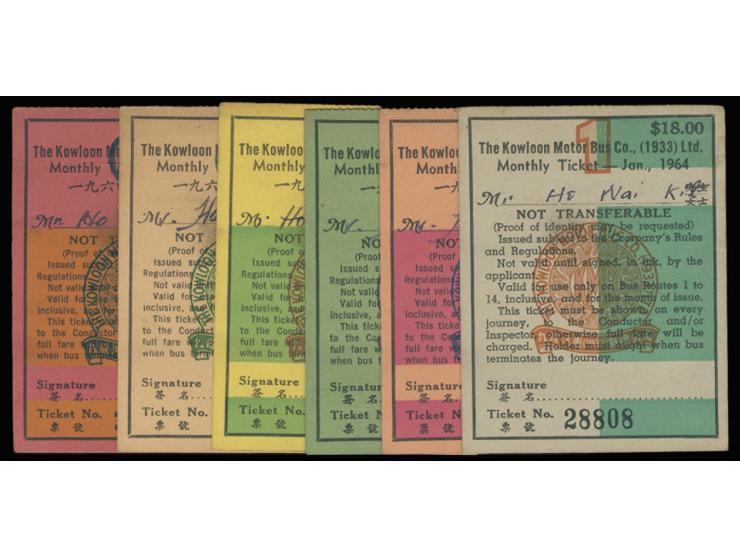 The Kowloon Mo
Monthly
一九六
Mr Ho
NOT
(Proof o
Issued su
Regulations.
Not valid
Valid fo
inclusive, an
This ticke
to the Conduc
full fare w
when bus term
Signature
簽名
Ticket No.
票號
The Kowloon
Monthly T
一九六
Mr. Ho
NOT
(Proof o
Issued su
Regulations
Not valid
Valid for
inclusive, a
This ticke
to the Condu
full fare w
when bus t
Signature
簽名
Ticket No.
票號
The Kowloo
Monthly
一九
Mr. Ho
NOT
(Proof
Issued
Regulation
Not val
Valid
inclusive,
This ti
to the Con
full fare
when bus
Signature
簽名
Ticket No
票號
The Kowlo
Monthl
一
Mr.
N
(Pro
Issue
Regulati
Not
Valid
inclusiv
This
to the C
full far
when b
Signature
簽名
Ticket N
票號
The Kowloon
Monthly T
一九六
Mr.
NOT
(Proof o
Issued su
Regulations
Not valid
Valid for
inclusive, a
This ticke
to the Condu
full fare w
when bus te
Signature
簽名
Ticket No.
票號
1
$18.00
The Kowloon Motor Bus Co., (1933) Ltd.
Monthly Ticket — Jan., 1964
Mr. Ho Nai K. 女士
NOT TRANSFERABLE
(Proof of identity may be requested)
Issued subject to the Company's Rules
and Regulations.
Not valid until signed, in ink, by the
applicant.
Valid for use only on Bus Routes 1 to
14, inclusive, and for the month of issue.
This ticket must be shown on every
journey, to the Conductor and/or
Inspector, otherwise full fare will be
charged. Holder must alight when bus
terminates the journey.
Signature
簽名
Ticket No. 28808
票號